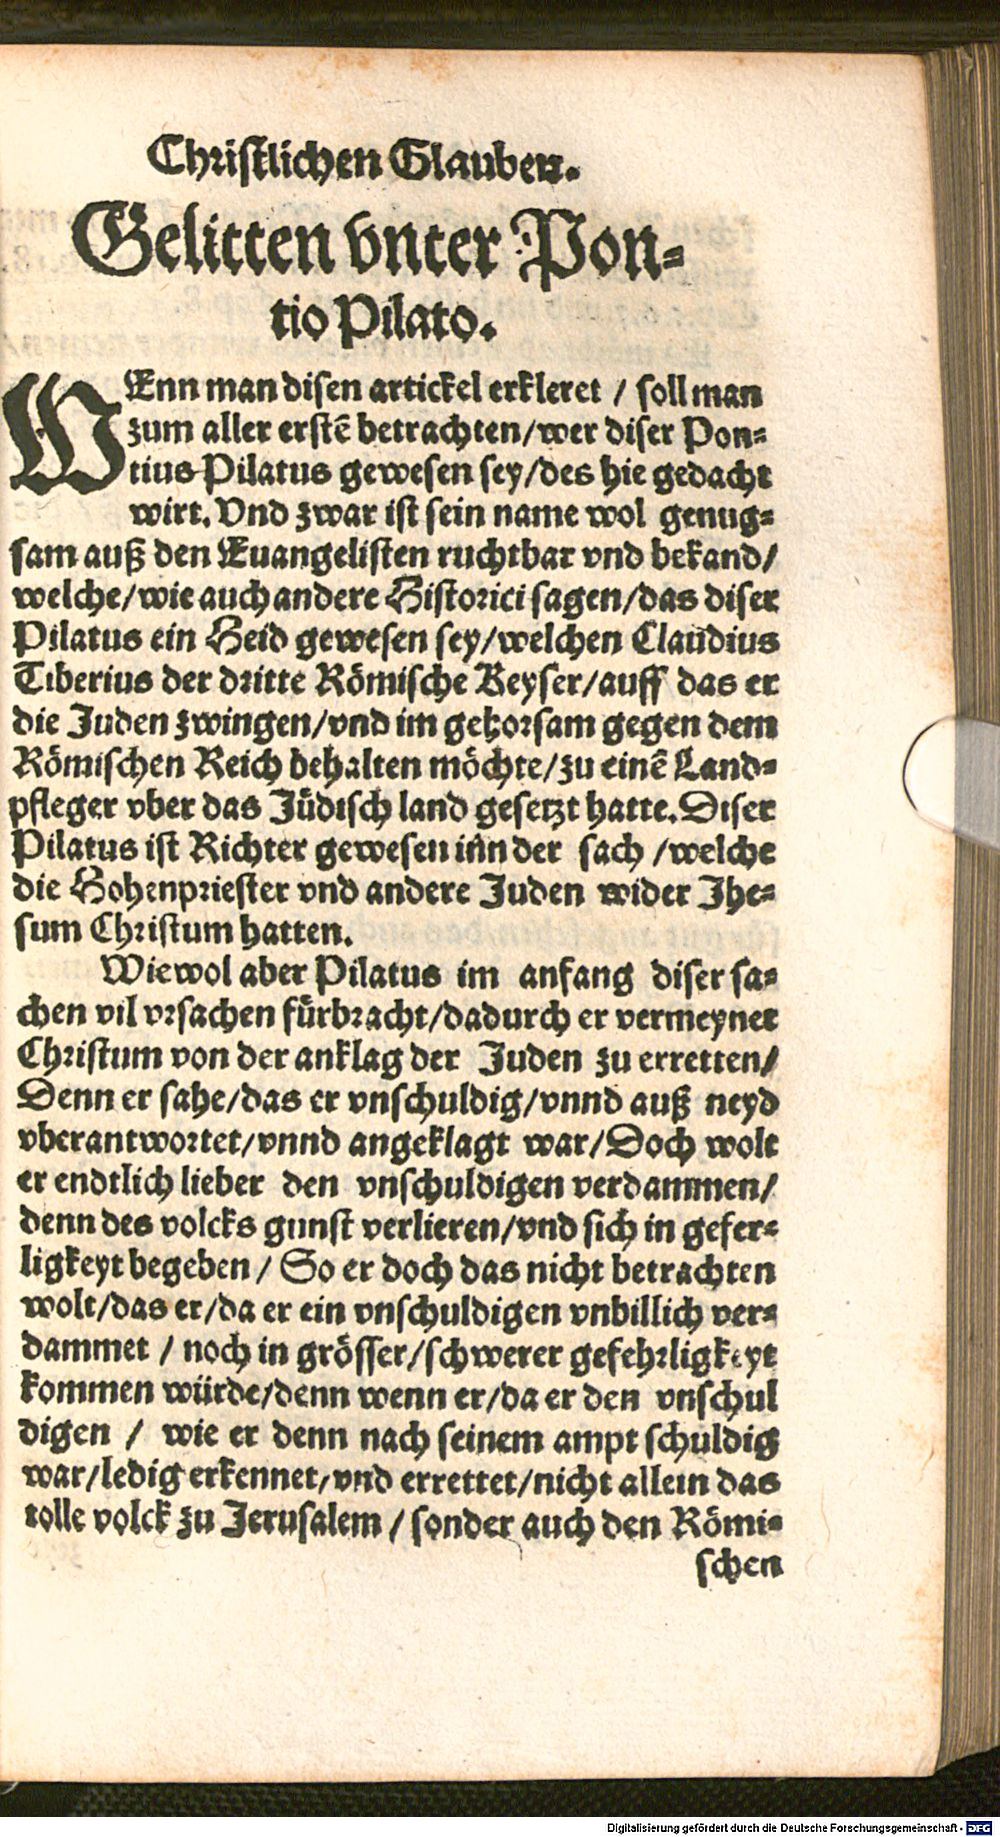 Christlichen Glauben.
Gelitten vnter Pon⸗
tio Pilato.
WEnn man disen artickel erkleret / soll man
zum aller erstē betrachten/wer diser Pon⸗
tius Pilatus gewesen sey/des hie gedacht
wirt. Vnd zwar ist sein name wol genug⸗
sam auß den Euangelisten ruchtbar vnd bekand/
welche/wie auch andere Historici sagen/das diser
Pilatus ein Heid gewesen sey/welchen Claudius
Tiberius der dritte Römische Keyser/auff das er
die Juden zwingen/vnd im gehorsam gegen dem
Römischen Reich behalten möchte/zu einē Land⸗
pfleger vber das Jüdisch land gesetzt hatte. Diser
Pilatus ist Richter gewesen inn der sach /welche
die Hohenpriester vnd andere Juden wider Jhe⸗
sum Christum hatten.
Wiewol aber Pilatus im anfang diser sa⸗
chen vil vrsachen fürbracht/dadurch er vermeynet
Christum von der anklag der Juden zu erretten/
Denn er sahe/das er vnschuldig/vnnd auß neyd
vberantwortet/vnnd angeklagt war/Doch wolt
er endtlich lieber den vnschuldigen verdammen/
denn des volcks gunst verlieren/vnd sich in gefer⸗
ligkeyt begeben / So er doch das nicht betrachten
wolt/das er/da er ein vnschuldigen vnbillich ver⸗
dammet / noch in grösser/schwerer gefehrligkeyt
kommen würde/denn wenn er/da er den vnschul
digen / wie er denn nach seinem ampt schuldig
war/ledig erkennet/vnd errettet/nicht allein das
tolle volck zu Jerusalem / sonder auch den Römi⸗
schen
Digitalisierung gefördert durch die Deutsche Forschungsgemeinschaft - DFG